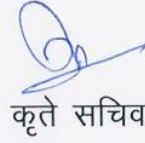 कृते सचिव